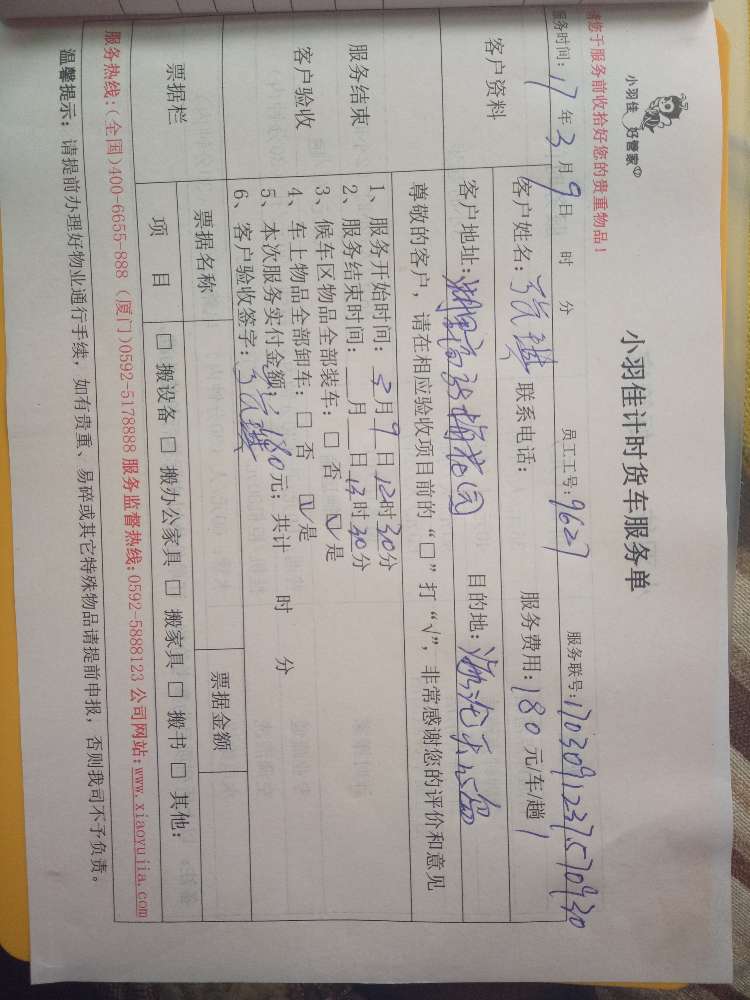 小羽佳 好管家
小羽佳计时货车服务单
您于服务前收拾好您的贵重物品！
服务时间：17年3月9日 时 分 员工工号：9627 服务联号：1703091237570930
客户资料
客户姓名： 联系电话： 服务费用：180元/车/趟
客户地址： 目的地：
尊敬的客户，请在相应验收项目前的“□”打“√”，非常感谢您的评价和意见
服务结束
客户验收
1、服务开始时间：3月9日12时30分
2、服务结束时间： 月 日13时30分
3、候车区物品全部装车：□ 否 ☑ 是
4、车上物品全部卸车：□ 否 ☑ 是
5、本次服务实付金额：180元；共计 时 分
6、客户验收签字：
票据栏
票据名称 票据金额
项 目 □ 搬设备 □ 搬办公家具 □ 搬家具 □ 搬书 □ 其他：
服务热线：(全国)400-6655-888 (厦门)0592-5178888 服务监督热线：0592-5888123 公司网站：www.xiaoyujia.com
温馨提示：请提前办理好物业通行手续，如有贵重、易碎或其它特殊物品请提前申报，否则我司不予负责。